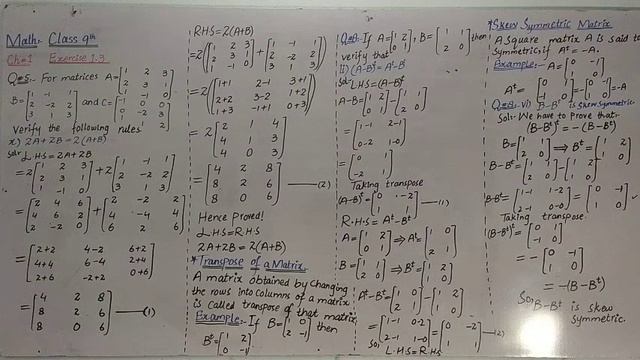 Math. Class 9th
Ch#1 Exercise 1.3
Q=5:- For matrices A= [1 2 3
2 3 1
1 -1 0]
B= [1 -1 1
2 -2 2
3 1 3] and C= [-1 0 0
0 -2 3
1 1 2]
Verify the following rules
x) 2A+2B = 2(A+B)
Sol:- L.H.S = 2A+2B
=2 [1 2 3
2 3 1
1 -1 0] +2 [1 -1 1
2 -2 2
3 1 3]
= [2 4 6
4 6 2
2 -2 0] + [2 -2 2
4 -4 4
6 2 6]
= [2+2 4-2 6+2
4+4 6-4 2+4
2+6 -2+2 0+6]
= [4 2 8
8 2 6
8 0 6] (1)
RHS = 2(A+B)
=2 ([1 2 3
2 3 1
1 -1 0] + [1 -1 1
2 -2 2
3 1 3])
=2 [1+1 2-1 3+1
2+2 3-2 1+2
1+3 -1+1 0+3]
= 2 [2 1 4
4 1 3
4 0 3]
= [4 2 8
8 2 6
8 0 6] (2)
Hence Proved!
L.H.S = R.H.S
2A+2B = 2(A+B)
*Transpose of a Matrix
A matrix obtained by changing
the rows into columns of a matrix
is called transpose of that matrix.
Example:- If B= [1 0
2 -1] then
Bt = [1 2
0 -1]
Q=8: If A= [1 2
0 1], B= [1 1
2 0] then
verify that
ii) (A-B)t = At-Bt
Sol:- L.H.S = (A-B)t
A-B= [1 2
0 1] - [1 1
2 0]
= [1-1 2-1
0-2 1-0]
= [0 1
-2 1]
Taking transpose
(A-B)t = [0 -2
1 1] (1)
R.H.S = At-Bt
A= [1 2
0 1] ⇒ At= [1 0
2 1]
B= [1 1
2 0] ⇒ Bt= [1 2
1 0]
At-Bt = [1 0
2 1] - [1 2
1 0]
= [1-1 0-2
2-1 1-0] = [0 -2
1 1] (2)
So, L.H.S = R.H.S
*Skew Symmetric Matrix
A Square matrix A is said to
Symmetric if At = -A.
Example:- A= [0 -1
1 0]
At = [0 1
-1 0] = - [0 -1
1 0] = -A
vi) B-Bt is skew symmetric
Sol:- We have to prove that:-
(B-Bt)t = -(B-Bt)
B= [1 1
2 0] ⇒ Bt= [1 2
1 0]
B-Bt= [1 1
2 0] - [1 2
1 0]
B-Bt= [1-1 1-2
2-1 0-0] = [0 -1
1 0]
Taking transpose
(B-Bt)t = [0 1
-1 0]
= - [0 -1
1 0]
= -(B-Bt)
So, B-Bt is skew
symmetric.